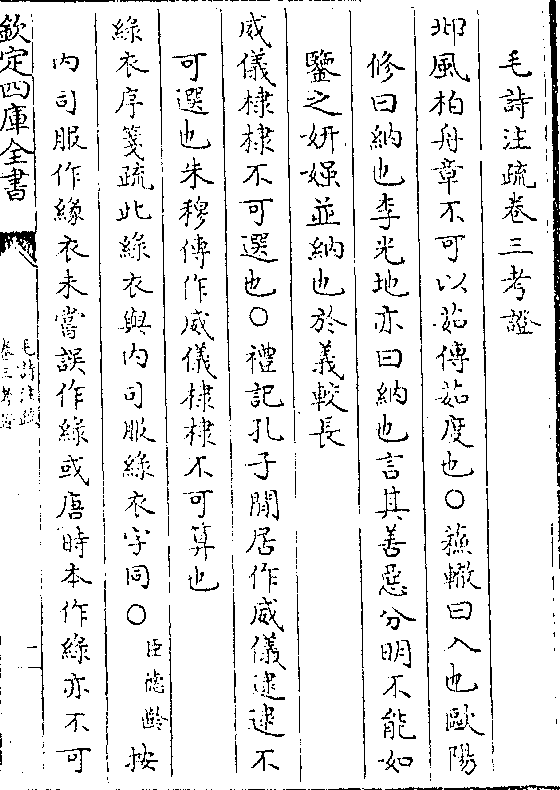 毛詩注疏卷三考證
邶風柏舟章不可以茹傳茹度也〇蘇轍曰入也歐陽
修曰納也李光地亦曰納也言其善惡分明不能如
鑒之妍媸並納也於義較長
威儀棣棣不可選也〇禮記孔子閒居作威儀逮逮不
可選也朱穆傳作威儀棣棣不可算也
綠衣序箋疏此綠衣與内司服綠衣字同〇臣德齡按
内司服作緣衣未嘗誤作綠或唐時本作綠亦不可
欽定四庫全書
毛詩注疏
卷三考證
一